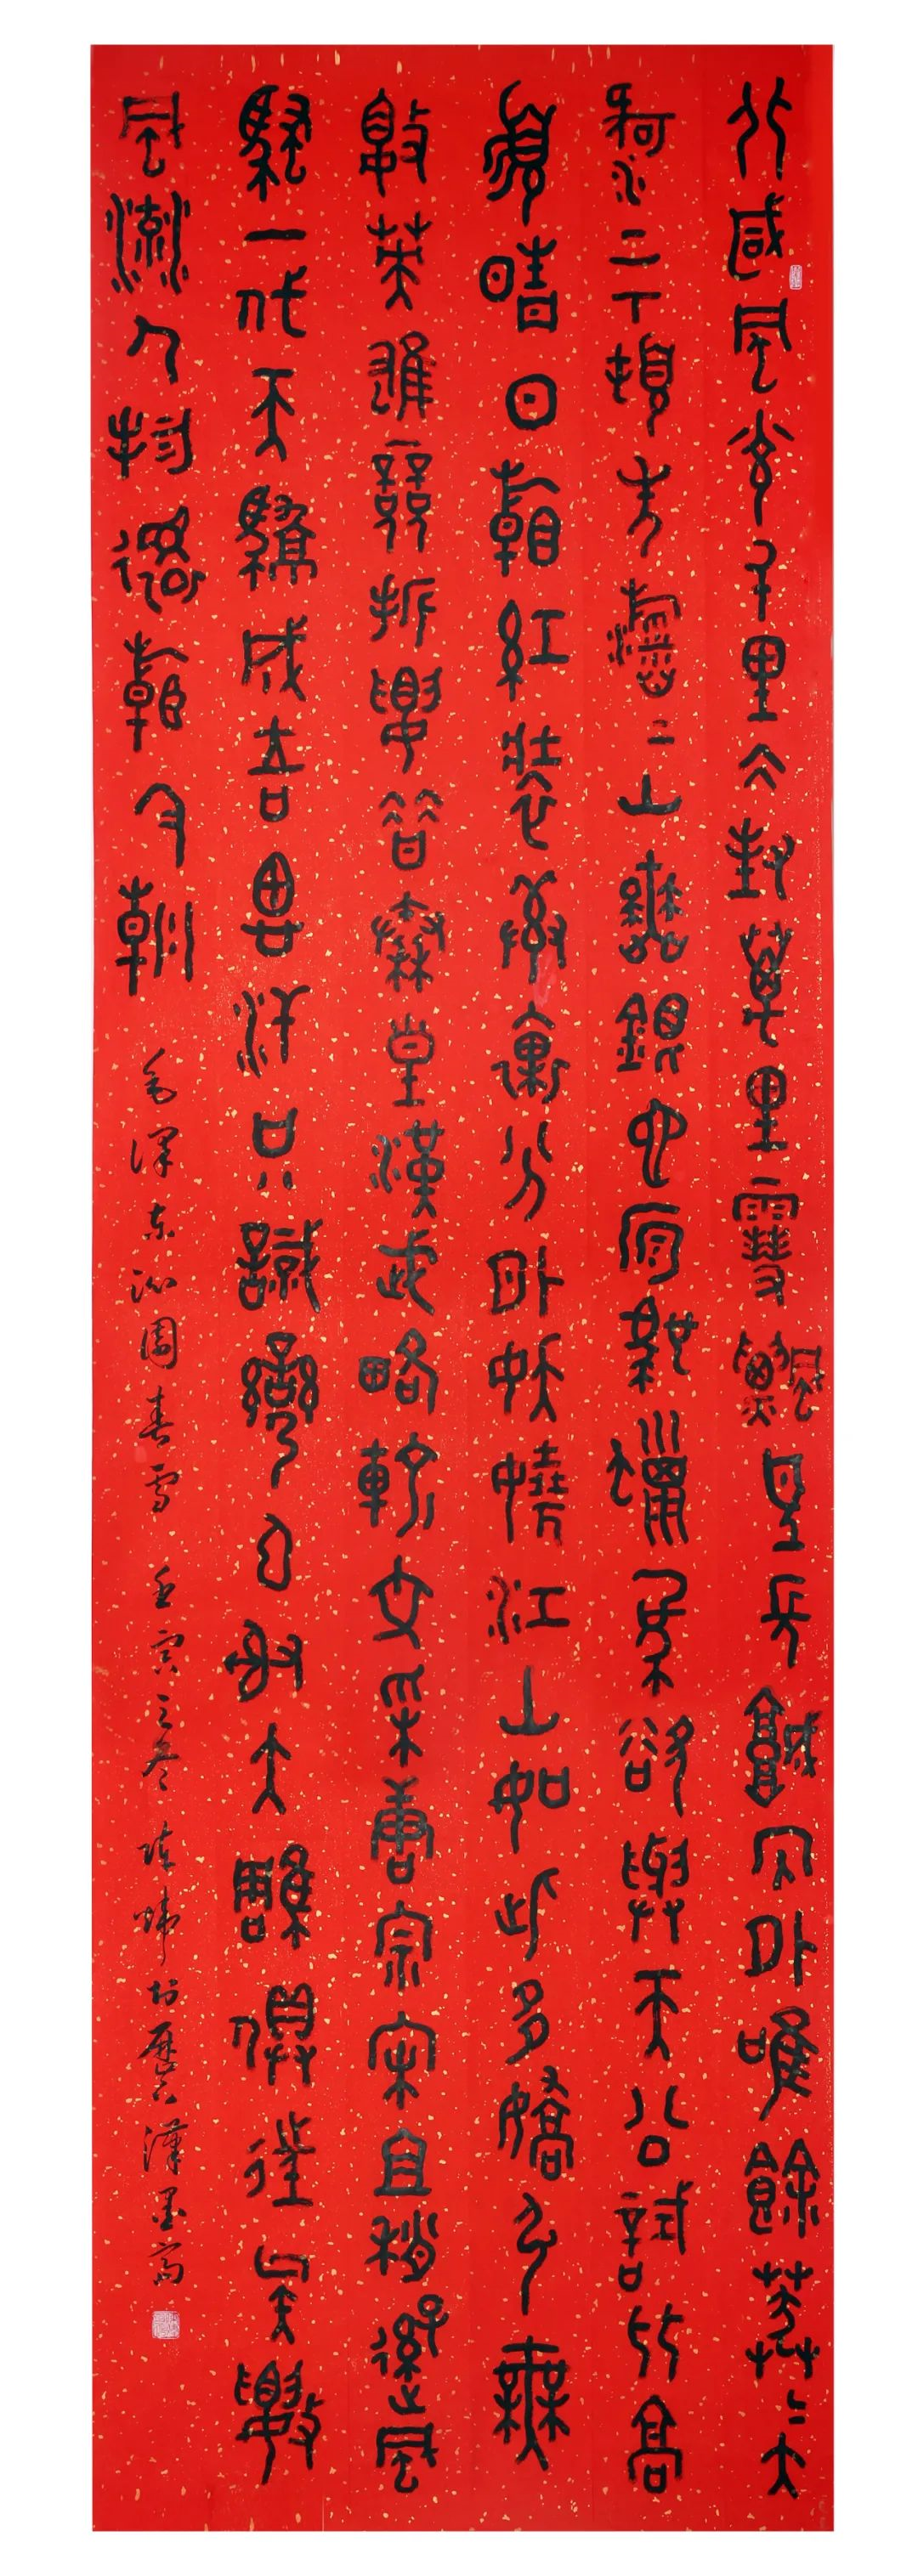 北國風光千里冰封萬里雪飄望長城內外唯餘莽莽大
河上下頓失滔滔山舞銀蛇原馳蠟象欲與天公試比高
須晴日看紅裝素裹分外妖嬈江山如此多嬌引無
數英雄競折腰昔秦皇漢武略輸文采唐宗宋祖稍遜風
騷一代天驕成吉思汗只識彎弓射大雕俱往矣數
風流人物還看今朝 毛澤東沁園春雪 壬寅之冬 於漢墨齋